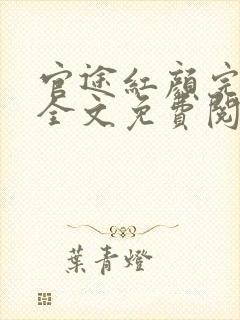 官途紅顏完
全文免費閱
葉青燈